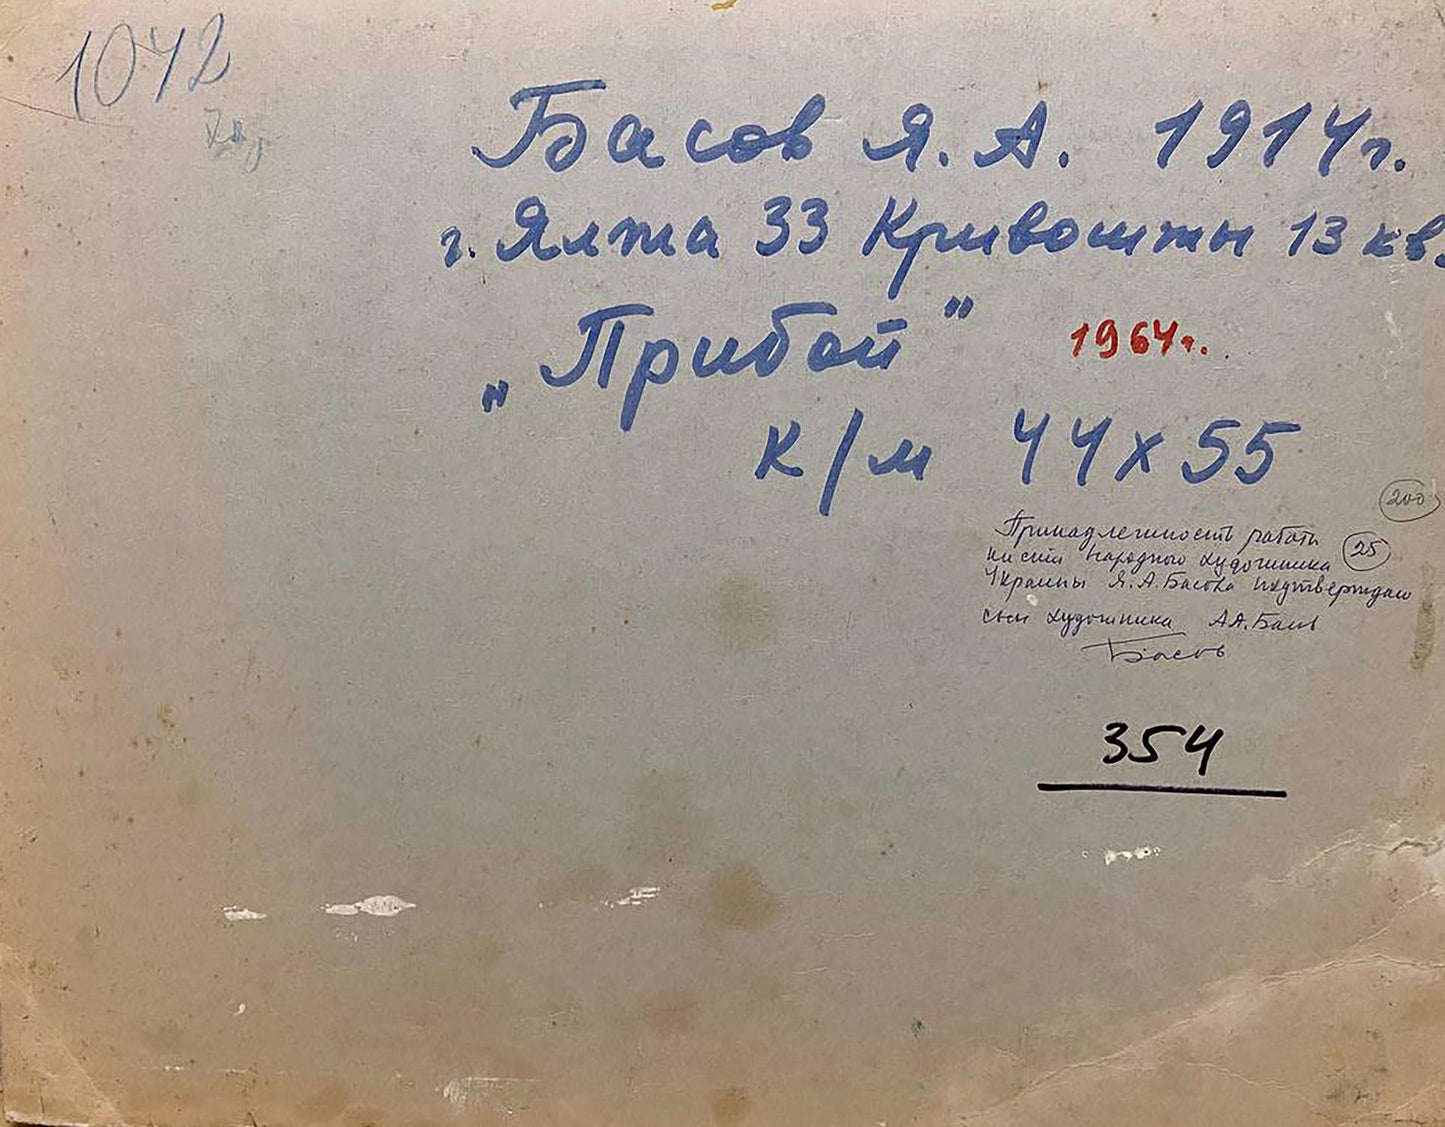 1042
Басов Я. А. 1914г.
г. Ялта 33 Кривошты 13 кв.
„Прибой" 1964г.
к/м 44х55
200
Принадлежность работы 25
кисти народного художника
Украины Я. А. Басова подтверждаю
сын художника А Я. Басов
Басов
354